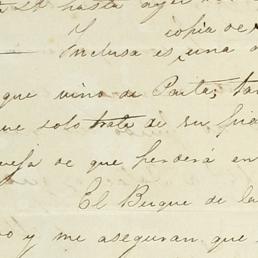 hasta aqui
Y copia de
Inclusa es una
que vino de Parta, tan
que solo trate de su
queja de que perderá en
El Buque de la
y me aseguran que